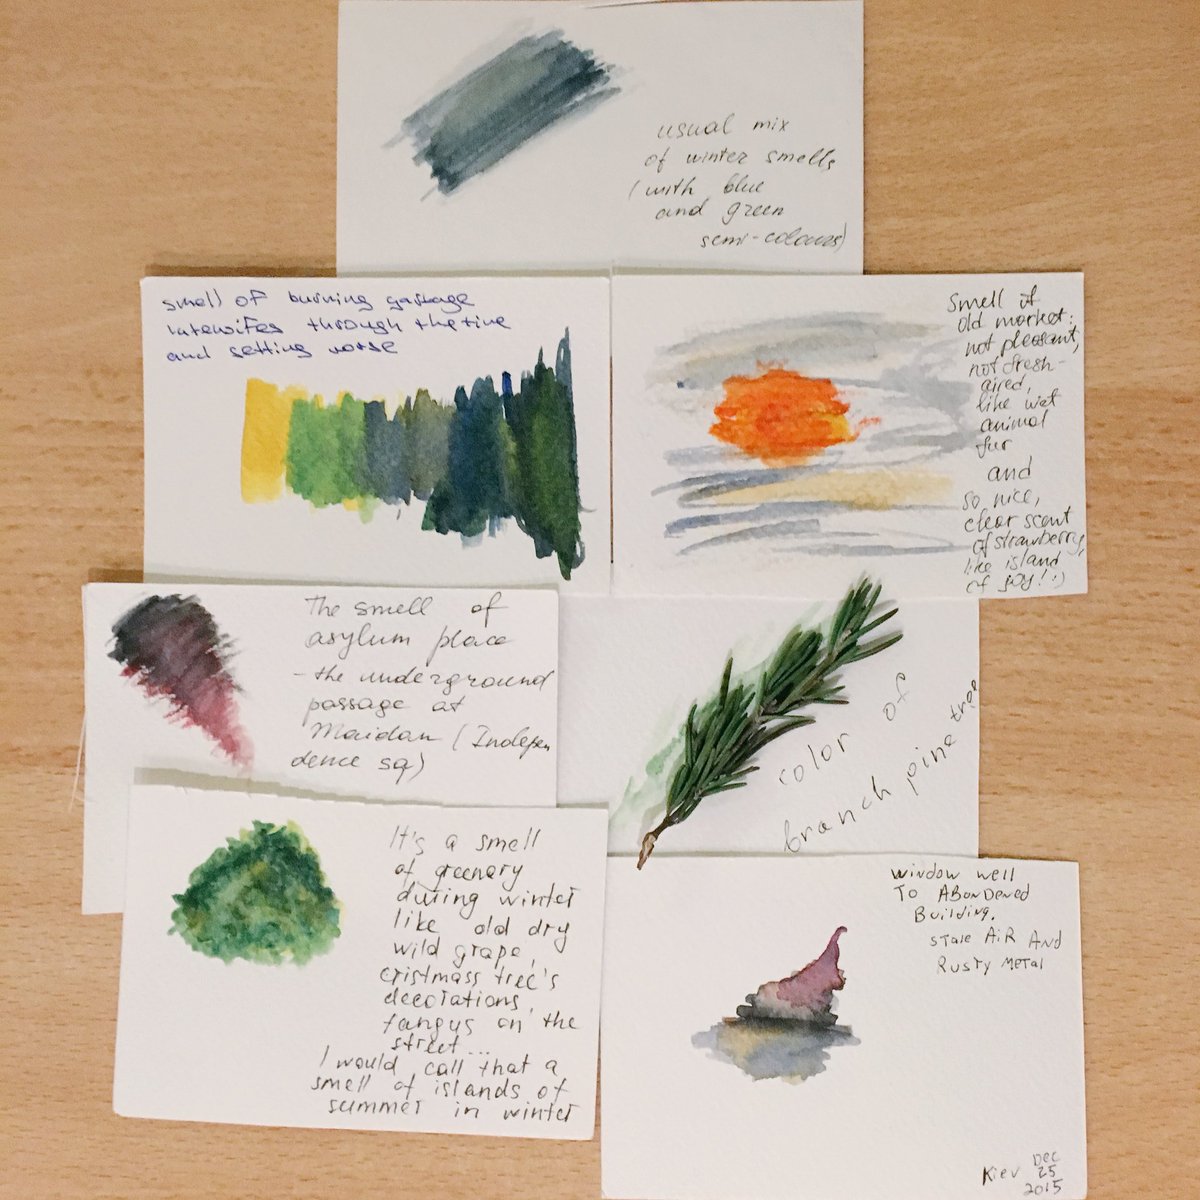 usual mix
of winter smells
(with blue
and green
semi-colours)
smell of burning garbage
intensifes through the time
and setting worse
smell of
old market:
not pleasant,
not fresh-
aired,
like wet
animal
fur
and
so nice,
clear scent
of strawberry,
like island
of joy! :)
The smell of
asylum place
- the underground
passage at
Maidan (Indepen
dence sq)
color of
branch pine tree
It's a smell
of greenery
during winter
like old dry
wild grape,
cristmass tree's
decorations,
fungus on the
street...
I would call that a
smell of islands of
summer in winter
window well
To ABonDened
Building.
stale AiR AnD
Rusty Metal
Kiev Dec
25
2015